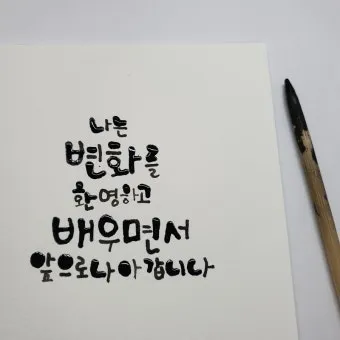 나는
변화를
환영하고
배우면서
앞으로 나아갑니다